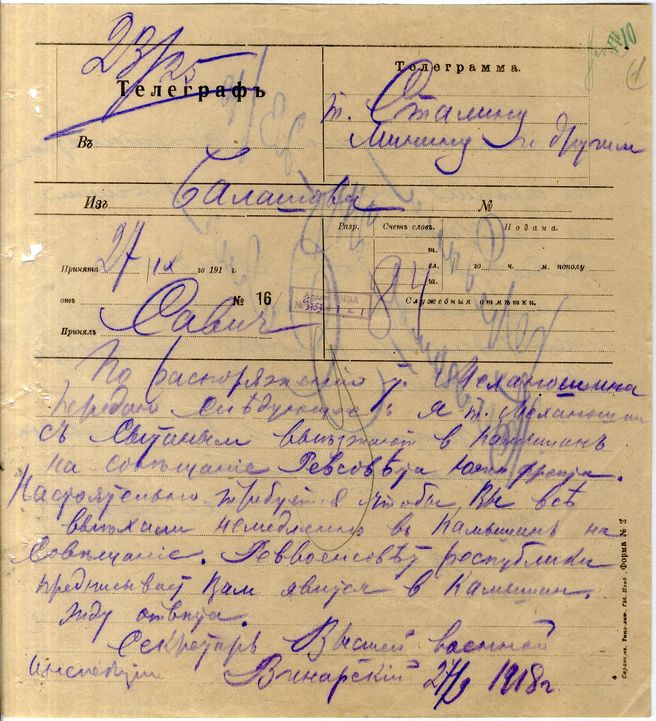 23/25
Телеграфъ
Телеграмма.
т. Сталину
Минину и другим
Въ
Изъ Балашова
№
Принята 27/IX го 191 г.
отъ № 16
Принялъ Савич
Разр.
Счетъ словъ.
Подана.
т.
сл.
ш.
84
го ч. м. пополу
Служебныя отмѣтки.
По распоряжению т. Механошина
передаю следующее: я т. Механошин
съ Сытиным выезжают в Камышин
на совещаніе Ревсовѣта Южн фронта.
Настоятельно требуется чтобы Вы всѣ
выехали немедленно въ Камышинъ на
Совещаніе. Реввоенсовѣт республики
предписывает Вам явится в Камышин.
Жду ответа.
Секретарь Высшей военной
инспекции Винарскій 27/9 1918 г.
Форма № 2